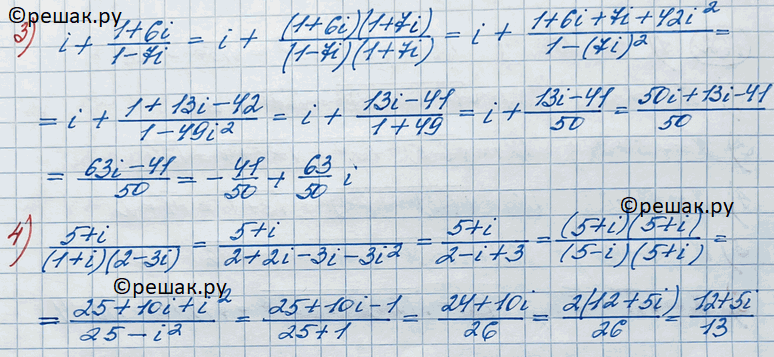 ©решак.ру
3) i + \frac{1+6i}{1-7i} = i + \frac{(1+6i)(1+7i)}{(1-7i)(1+7i)} = i + \frac{1+6i+7i+42i^2}{1-(7i)^2} =
= i + \frac{1+13i-42}{1-49i^2} = i + \frac{13i-41}{1+49} = i + \frac{13i-41}{50} = \frac{50i+13i-41}{50}
= \frac{63i-41}{50} = -\frac{41}{50} + \frac{63}{50} i
©решак.ру
4) \frac{5+i}{(1+i)(2-3i)} = \frac{5+i}{2+2i-3i-3i^2} = \frac{5+i}{2-i+3} = \frac{(5+i)(5+i)}{(5-i)(5+i)} =
©решак.ру
= \frac{25+10i+i^2}{25-i^2} = \frac{25+10i-1}{25+1} = \frac{24+10i}{26} = \frac{2(12+5i)}{26} = \frac{12+5i}{13}